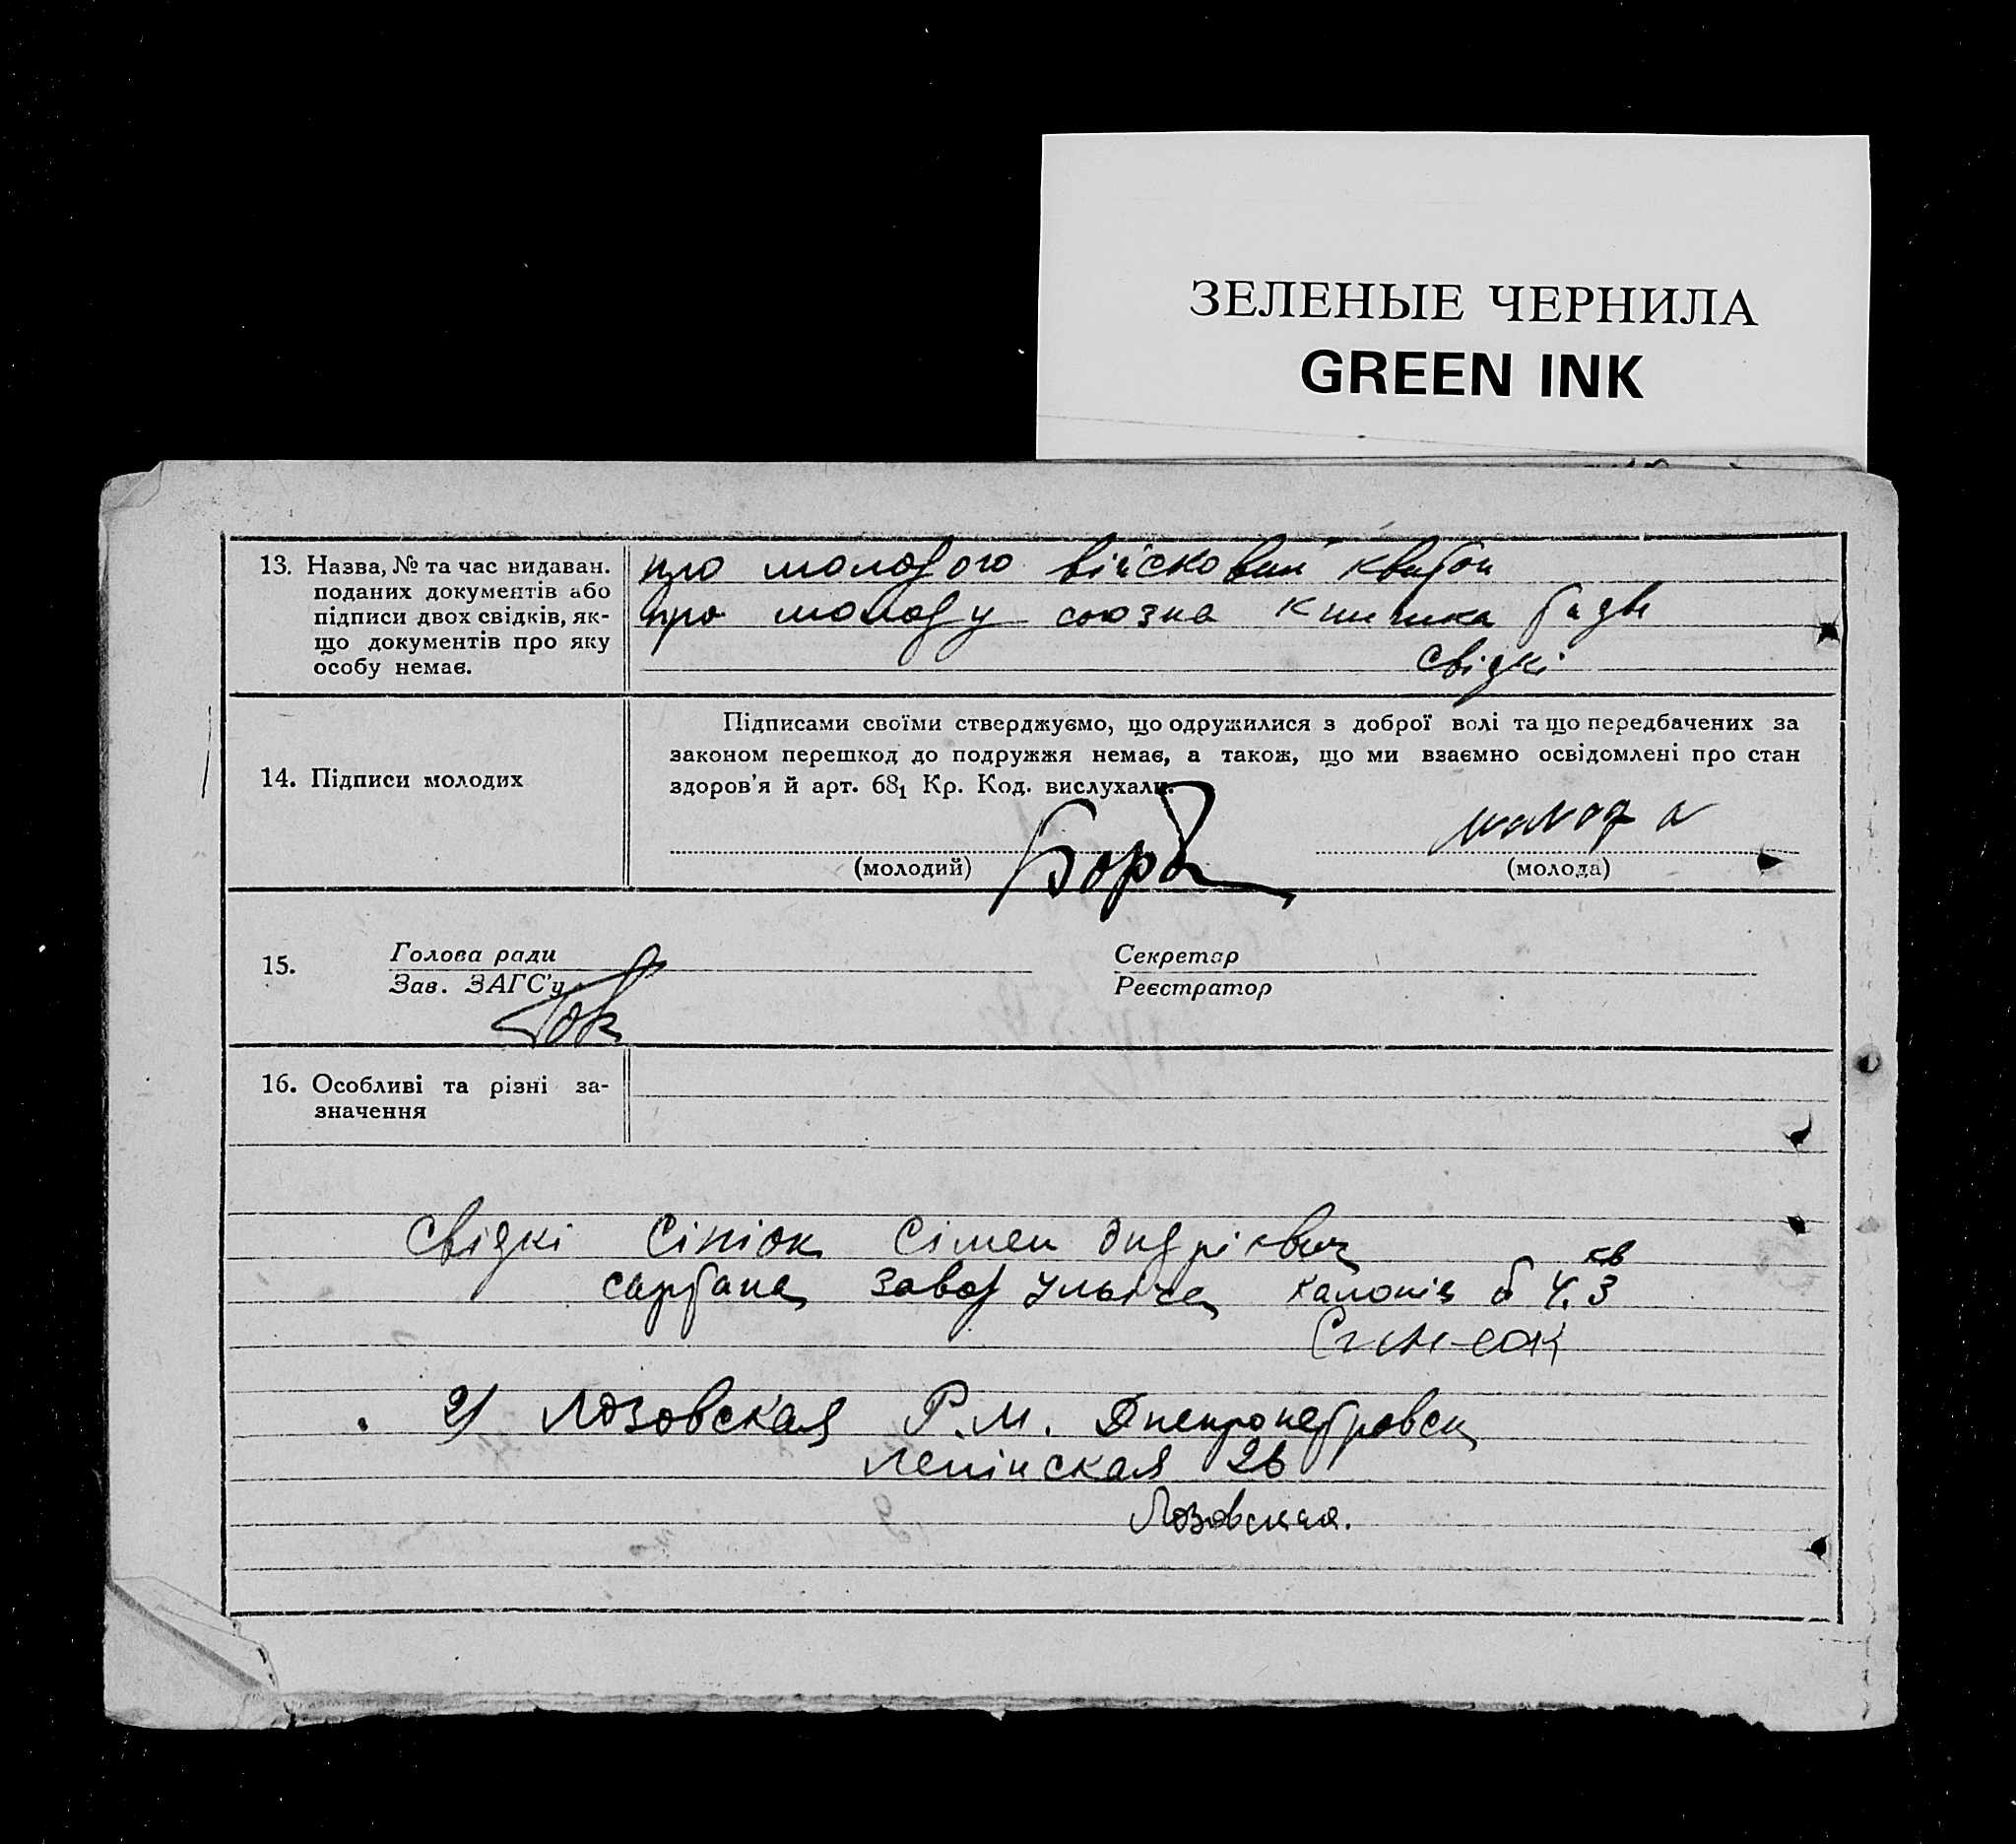 ЗЕЛЕНЫЕ ЧЕРНИЛА
GREEN INK
13. Назва, № та час видаван.
поданих документів або
підписи двох свідків, як-
що документів про яку
особу немає.
про молодого війсковий квиток
про молоду союзна книжка
свідкі
14. Підписи молодих
Підписами своїми стверджуємо, що одружилися з доброї волі та що передбачених за
законом перешкод до подружжя немає, а також, що ми взаємно освідомлені про стан
здоров'я й арт. 68₁ Кр. Код. вислухали.
молода
(молодий)
(молода)
15.
Голова ради
Зав. ЗАГС'у
Секретар
Реєстратор
16. Особливі та різні за-
значення
Свідкі Сінюк Сімен
кв
завод колонія б 4. 3
Синюк
2) Лозовская Р.М. Днепропетровск
Ленінская 26
Лозовская.